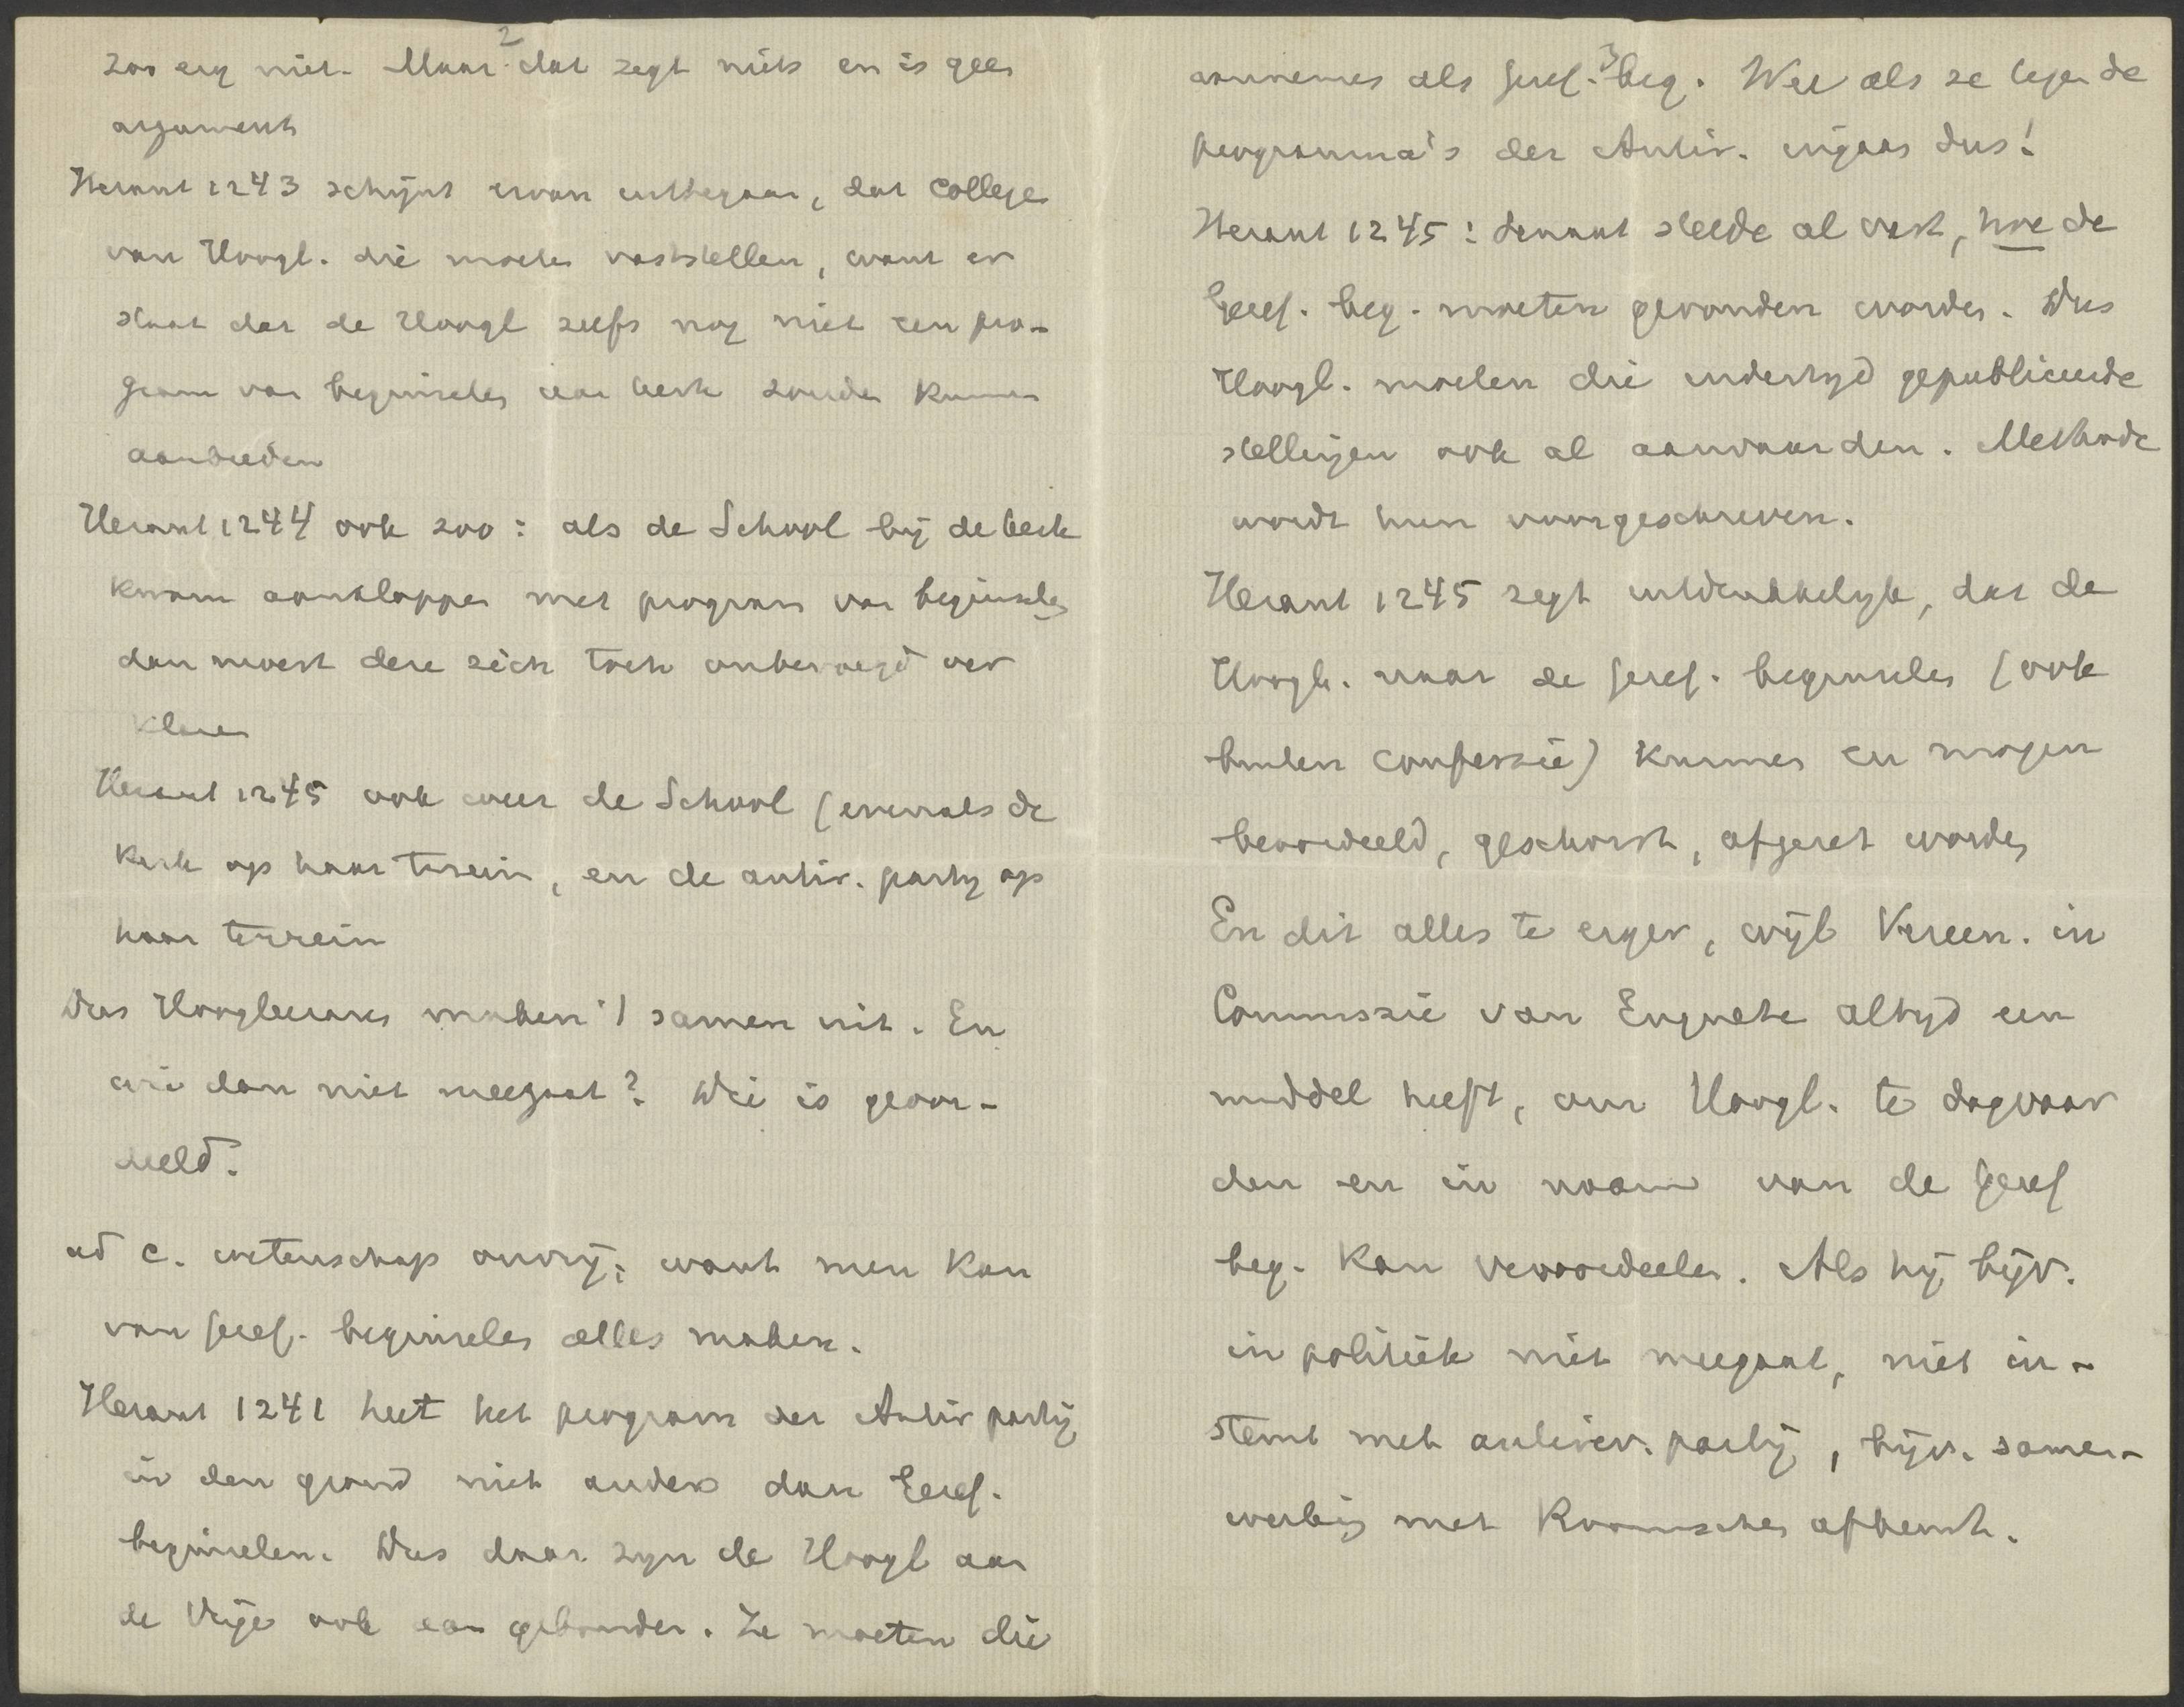 2
zoo erg niet. Maar dat zegt niets en is geen
argument
Heraut 1243 schijnt ervan uittegaan, dat College
van Hoogl. die moeten vaststellen, want er
staat dat de Hoogl zelfs nog niet een pro-
gram van beginselen aan kerk zouden kunnen
aanbieden
Heraut 1244 ook zoo: als de School bij de kerk
kwam aankloppen met program van beginselen
dan moest deze zich toch onbevoegd ver
klaren
Heraut 1245 ook weer de School (evenals de
Kerk op haar terrein, en de antir. partij op
haar terrein
Dus Hoogleeraren maken 't samen uit. En
wie dan niet meegaat? Die is geoor-
deeld.
ad c. wetenschap onvrij; want men kan
van Geref. beginselen alles maken.
Heraut 1241 heet het program der Antir partij
in den grond niet anders dan Geref.
beginselen. Dus daar zijn de Hoogl aan
de Vrije ook aan gebonden. Ze moeten die
3
aannemen als Geref. beg. Wee als ze tegen de
programma's der Antir. ingaan dus!
Heraut 1245: Heraut stelde al vast, hoe de
Geref. beg. moeten gevonden worden. Dus
Hoogl. moeten die indertijd gepubliceerde
stellingen ook al aanvaarden. Methode
wordt hun voorgeschreven.
Heraut 1245 zegt uitdrukkelijk, dat de
Hoogl. naar de Geref. beginselen (ook
buiten confessie) kunnen en mogen
beoordeeld, geschorst, afgezet worden
En dit alles te erger, wijl Vereen. in
Commissie van Enquete altijd een
middel heeft, om Hoogl. te dagvaar
den en in naam van de Geref
beg. kan veroordeelen. Als hij bijv.
in politiek niet meegaat, niet in-
stemt met antirev. partij, bijv. samen-
werking met Roomschen afkeurt.